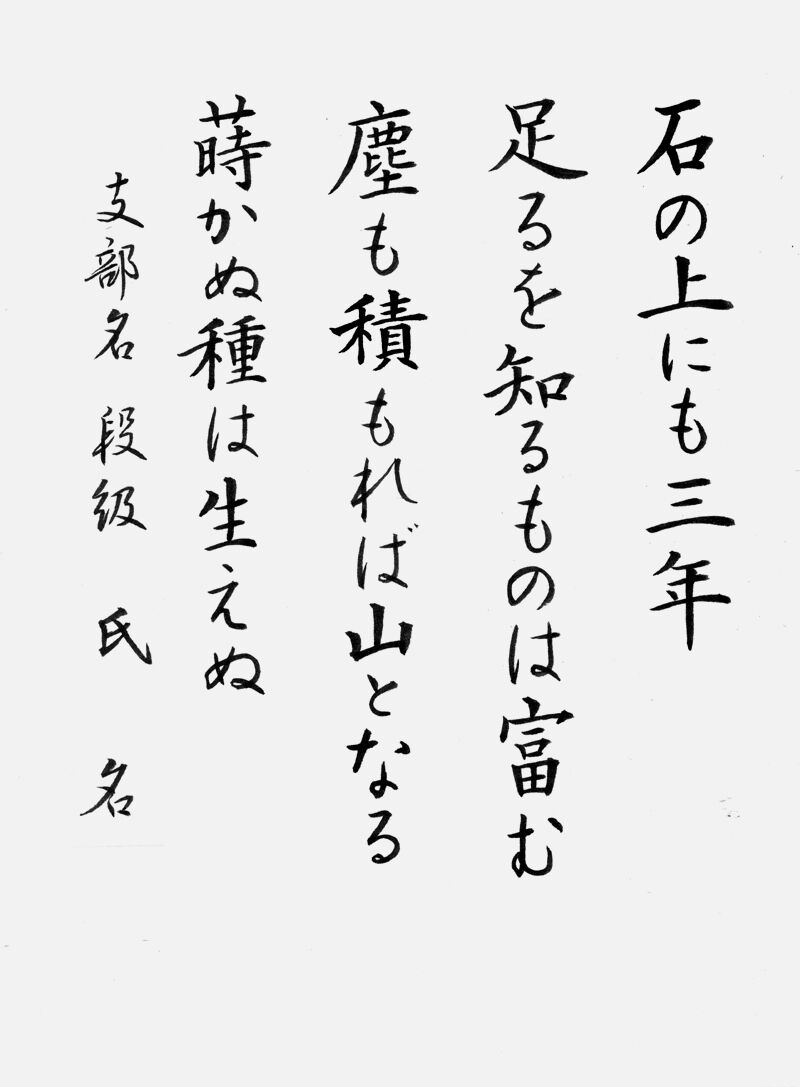 石の上にも三年
足るを知るものは富む
塵も積もれば山となる
蒔かぬ種は生えぬ
支部名 段級 氏 名